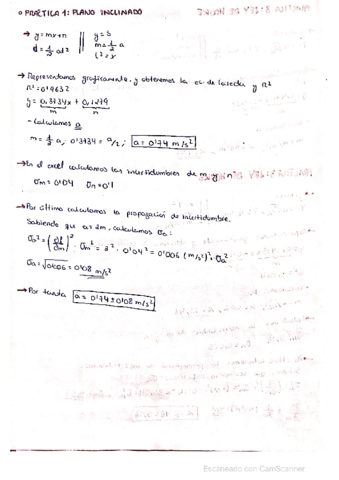 o PRÁCTICA 1: PLANO INCLINADO
→ y = mx+n || y = s
d = 1/2 at² || m = 1/2 a
t² = x
→ Representamos graficamente, y obtenemos la ec. de la recta y R²
R² = 0'9632
y = 0,3734x + 0,1479
m n
- Calculamos a
m = 1/2 a, 0'3734 = a/2, a = 0'74 m/s²
→ En el excel calculamos las incertidumbres de m y n
σm = 0'04 σn = 0'1
→ Por último calculamos la propagación de incertidumbre.
Sabiendo que a = 2m, calculamos σa:
σa² = (∂f/∂m)² · σm² = 2² · 0'04² = 0'006 (m/s²)² = σa²
σa = √0'006 = 0'08 m/s²
→ Por tanto a = 0'74 ± 0'08 m/s²
Escaneado con CamScanner